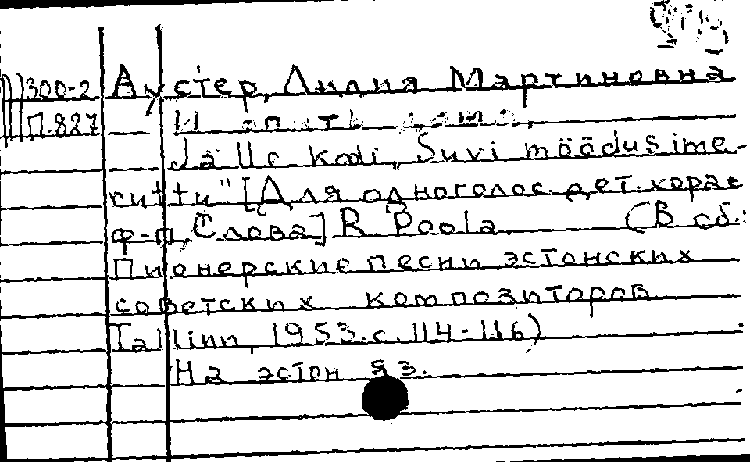 Ш300-2 Аустер, Лидия Мартиновна
П.827 И опять дома.
Jälle kodi, Suvi möödus ime-
ruttu" [Для одноголос. дет. хора с
ф-п, Слова] R Poola (В сб.:
Пионерские песни эстонских
советских композиторов
Tallinn, 1953. с. 114-116)
На эстон яз.